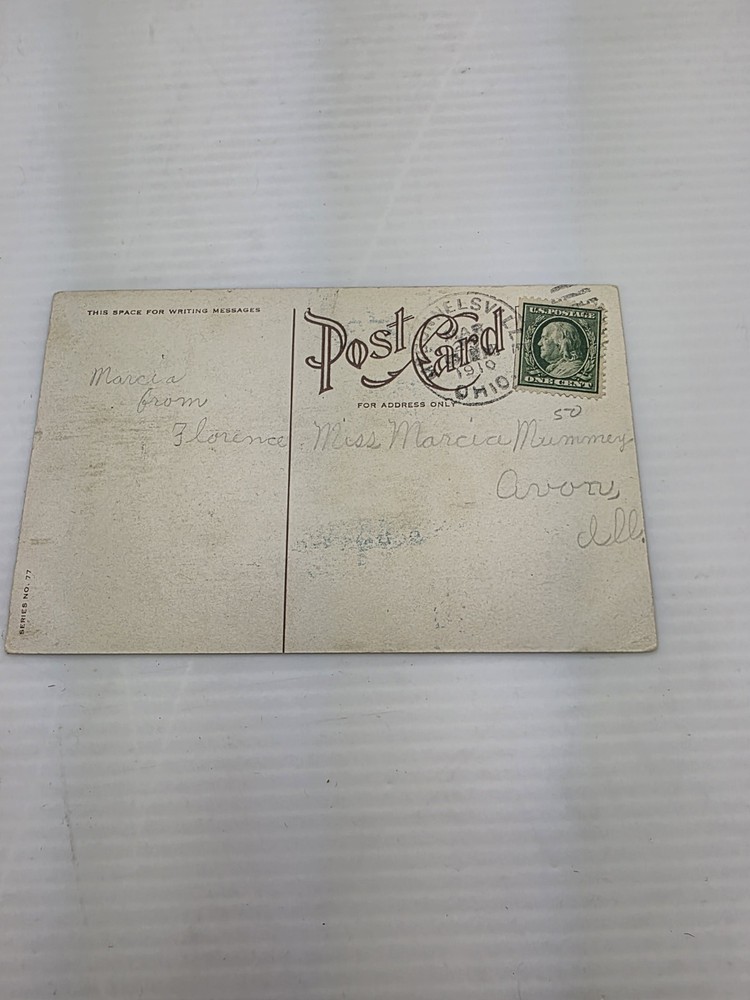 THIS SPACE FOR WRITING MESSAGES
Post Card
FOR ADDRESS ONLY
MAR
1910
OHIO
U.S. POSTAGE
ONE CENT
50
Marcia
from
Florence
Miss Marcia Mummey
Avon,
Ill.
SERIES NO. 77